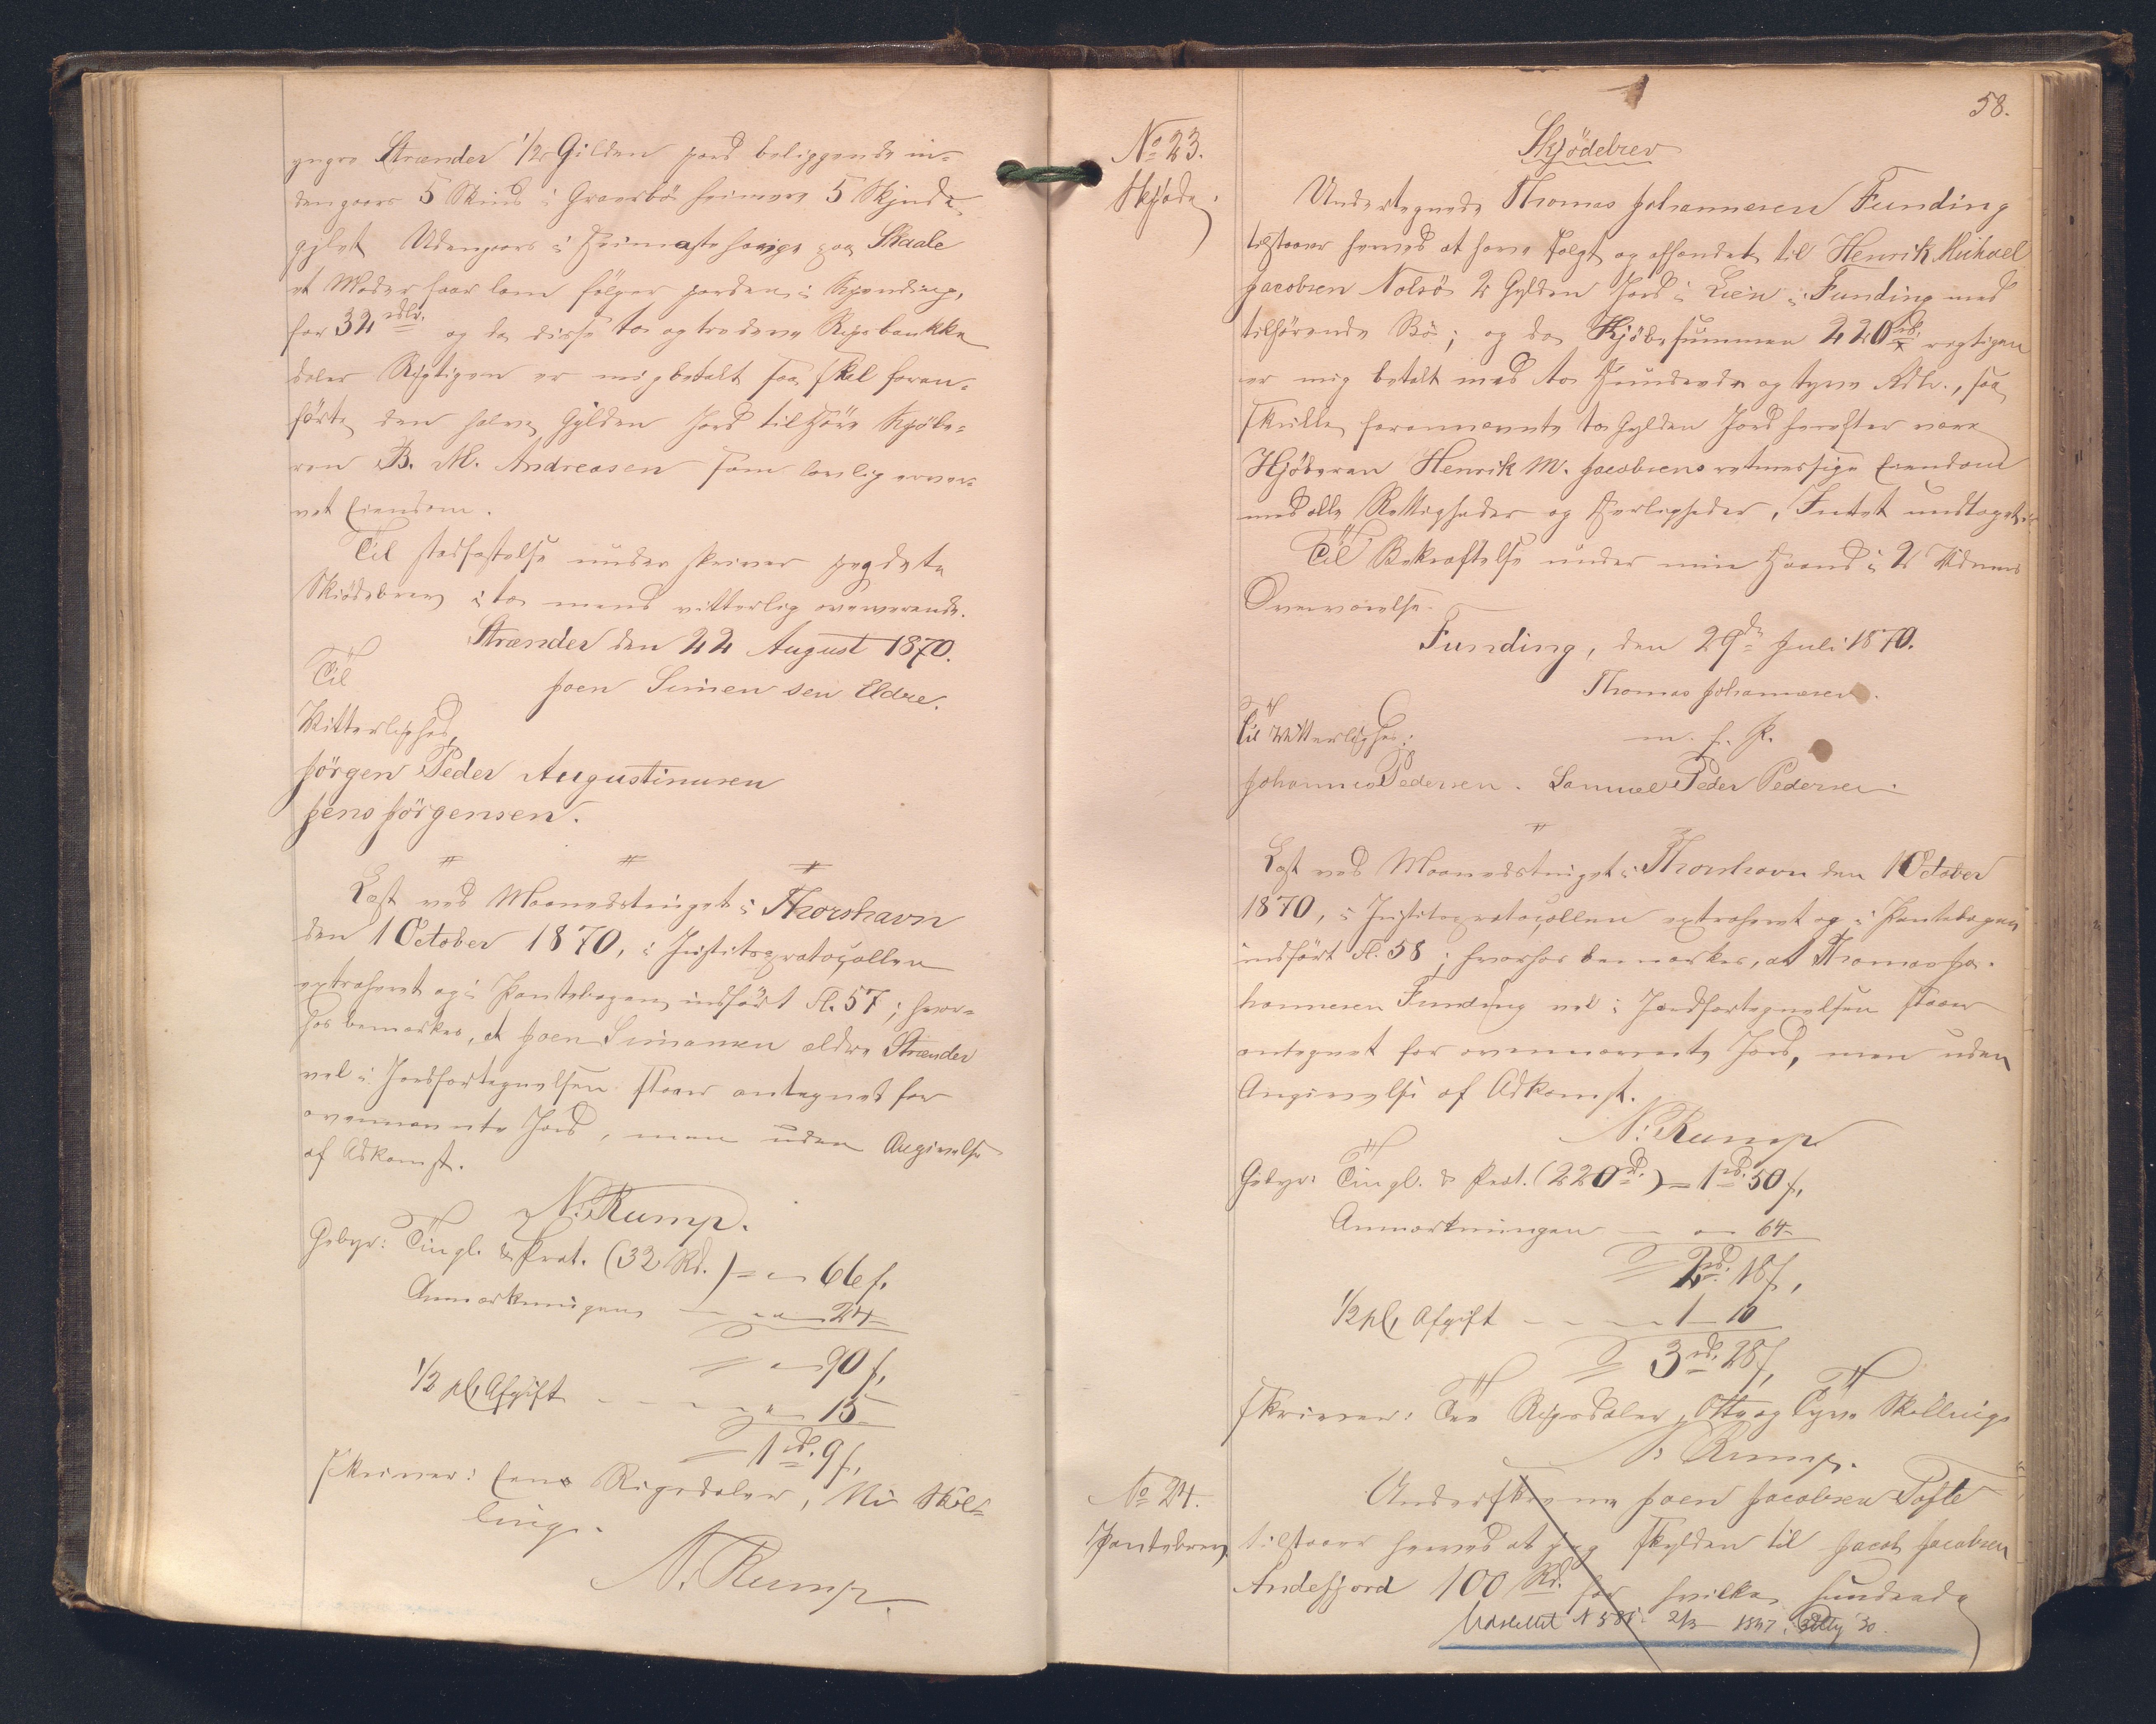 yngre Strænder 1/2 Gilden jord beliggende in-
dengaers 5 Skind i Graverbö heimere 5 Skinds
gylet Udengaers i Heimastehauge paa Skaale
et Moderfaar lam fölger jorden i Kjending,
for 32 rdlr. og da disse to og tredeve Rigsbankke
daler Rigtigen er mig betalt saa skal foran-
förte den halve Gylden Jord tilhöre Kjöbe-
ren B. M. Andreasen som lovlig erver-
vet Eiendom.
Til stadfæstelse under skriver jeg dete
Skiödebrev i to mends vitterlig overværende.
Strænder den 22 August 1870.
Til
Joen Simensen Eldre.
Vitterlighed
Jörgen Peder Augustinusen
Jens Jörgensen.
Læst ved Maanedstinget i Thorshavn
den 1 October 1870, i Justitsprotocollen
extraheret og i Pantebogen indfört Fl. 57; hvor-
hos bemærkes, at Joen Simonsen ældre Strænder
vel i Jordfortegnelsen staaer antegnet for
ovennævnte Jord, men uden Angivelse
af Adkomst.
N. Rump.
Gebyr: Tingl. & Prot. (32 Rd.) = " 66 s.
Anmærkningen — " 24
= " 90 s.
1/2 pCt Afgift - - - " 15
= 1 rd. 9 s.
skriver: Een Rigsdaler, Ni Skil-
ling.
N. Rump
58.
No 23.
Skjöde.
Skjödebrev
Undertegnede Thomas Johannesen Funding
tilstaaer herved at have solgt og afhændet til Henrik Michael
Jacobsen Nolsö 2 Gylden Jord i Lien i Funding med
tilhörende Bö; og da Kjöbesummen 220 rd. rigtigen
er mig betalt med to Hundrede og tyve Rdlr., saa
skulle forannævnte to Gylden Jord herefter være
Kjöberen Henrik M. Jacobsens retmessige Eiendom
med alle Rettigheder og Herligheder, Intet undtaget.
Til Bekræftelse under min Haand i 2 Vidners
Overværelse.
Funding, den 29de Juli 1870.
Thomas Johannesen.
Til Vitterlighed:
m. f. P.
Johannes Pedersen. Samuel Peder Pedersen.
Læst ved Maanedstinget i Thorshavn den 1 October
1870, i Justitsprotocollen extraheret og i Pantebogen
indfört Fl. 58; hvorhos bemærkes, at Thomas Jo-
hannesen Funding vel i Jordfortegnelsen staaer
antegnet for ovennævnte Jord, men uden
Angivelse af Adkomst.
N. Rump
Gebyr: Tingl. & Prot. (220 rd.) = 1 rd. 50 s.
Anmærkningen — " — 64
= 2 rd. 18 s.
1/2 pCt Afgift - - - 1 — 10
= 3 rd. 28 s.
skriver: Tre Rigsdaler, Otte og Tyve Skilling
N. Rump.
No 24.
Pantebrev.
Underskrevne Joen Jacobsen Tofte
tilstaaer herved at jeg skylder til Jacob Jacobsen
Andefjord 100 Rd. for hvilke hundrede
Udslettet N 2/3 1937